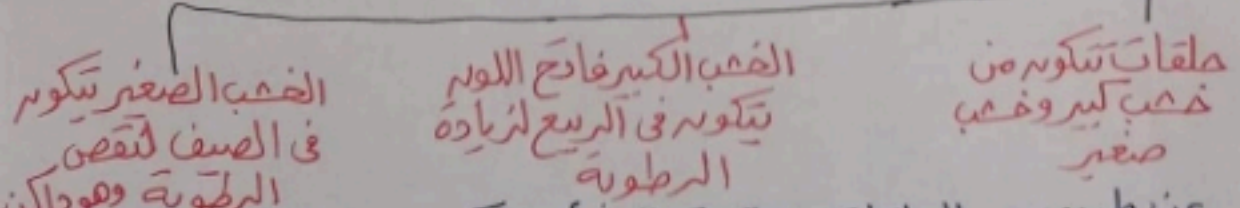 حلقات تتكون من
خشب كبير وخشب
صغير
الخشب الكبير فاتح اللون
يتكون في الربيع لزيادة
الرطوبة
الخشب الصغير يتكون
في الصيف لنقص
الرطوبة وهو داكن